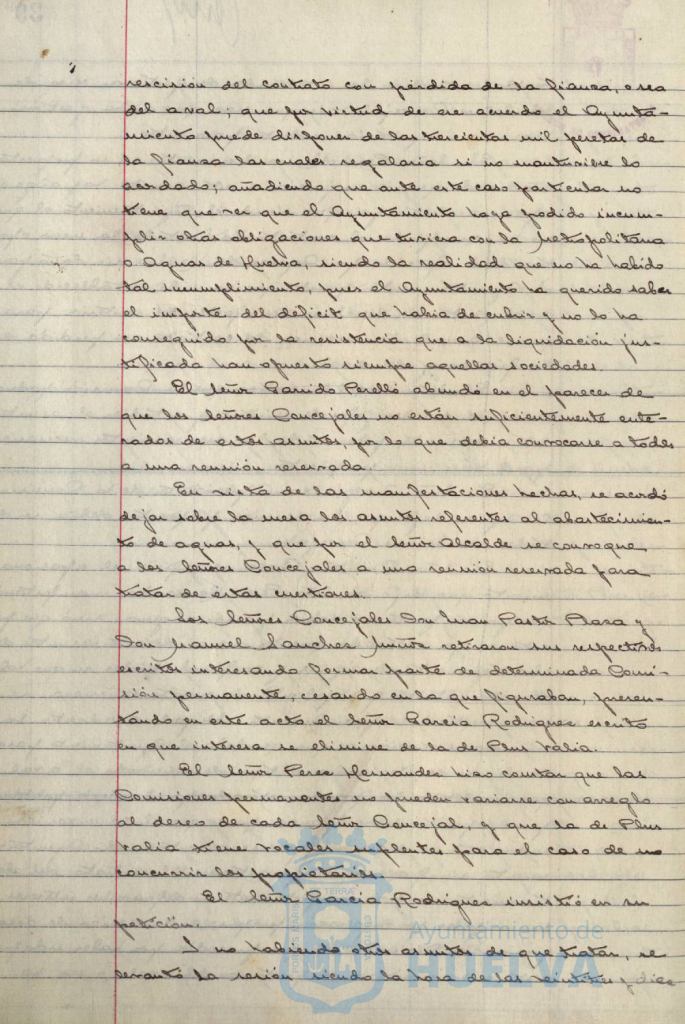 rescisión del contrato con pérdida de la fianza, o sea
del aval; que por virtud de ese acuerdo el Ayunta-
miento puede disponer de las trescientas mil pesetas de
la fianza las cuales regalaría si no mantuviere lo
acordado; añadiendo que ante este caso particular no
tiene que ver que el Ayuntamiento haya podido incum-
plir otras obligaciones que tuviera con la Metropolitana
o Aguas de Huelva, siendo la realidad que no ha habido
tal incumplimiento, pues el Ayuntamiento ha querido saber
el importe del déficit que había de cubrir y no lo ha
conseguido por la resistencia que a la liquidación jus-
tificada han opuesto siempre aquellas sociedades.
El Señor Garrido Perelló abundó en el parecer de
que los Señores Concejales no están suficientemente ente-
rados de estos asuntos, por lo que debía convocarse a todos
a una reunión reservada.
En vista de las manifestaciones hechas, se acordó
dejar sobre la mesa los asuntos referentes al abastecimien-
to de aguas, y que por el Señor Alcalde se convoque
a los Señores Concejales a una reunión reservada para
tratar de estas cuestiones.
Los Señores Concejales Don Juan Pastor Plaza y
Don Manuel Sanchez Muñoz retiraron sus respectivos
escritos interesando formar parte de determinada Comi-
sión permanente, cesando en la que figuraban, presen-
tando en este acto el Señor García Rodriguez escrito
en que interesa se elimine de la de Plus Valia.
El Señor Perez Hernandez hizo constar que las
Comisiones permanentes no pueden variarse con arreglo
al deseo de cada Señor Concejal, y que la de Plus
Valia tiene vocales suplentes para el caso de no
concurrir los propietarios.
El Señor García Rodriguez insistió en su
petición.
Y no habiendo otros asuntos de que tratar, se
levantó la sesión siendo la hora de las veintitres y diez
Ayuntamiento de
HUELVA